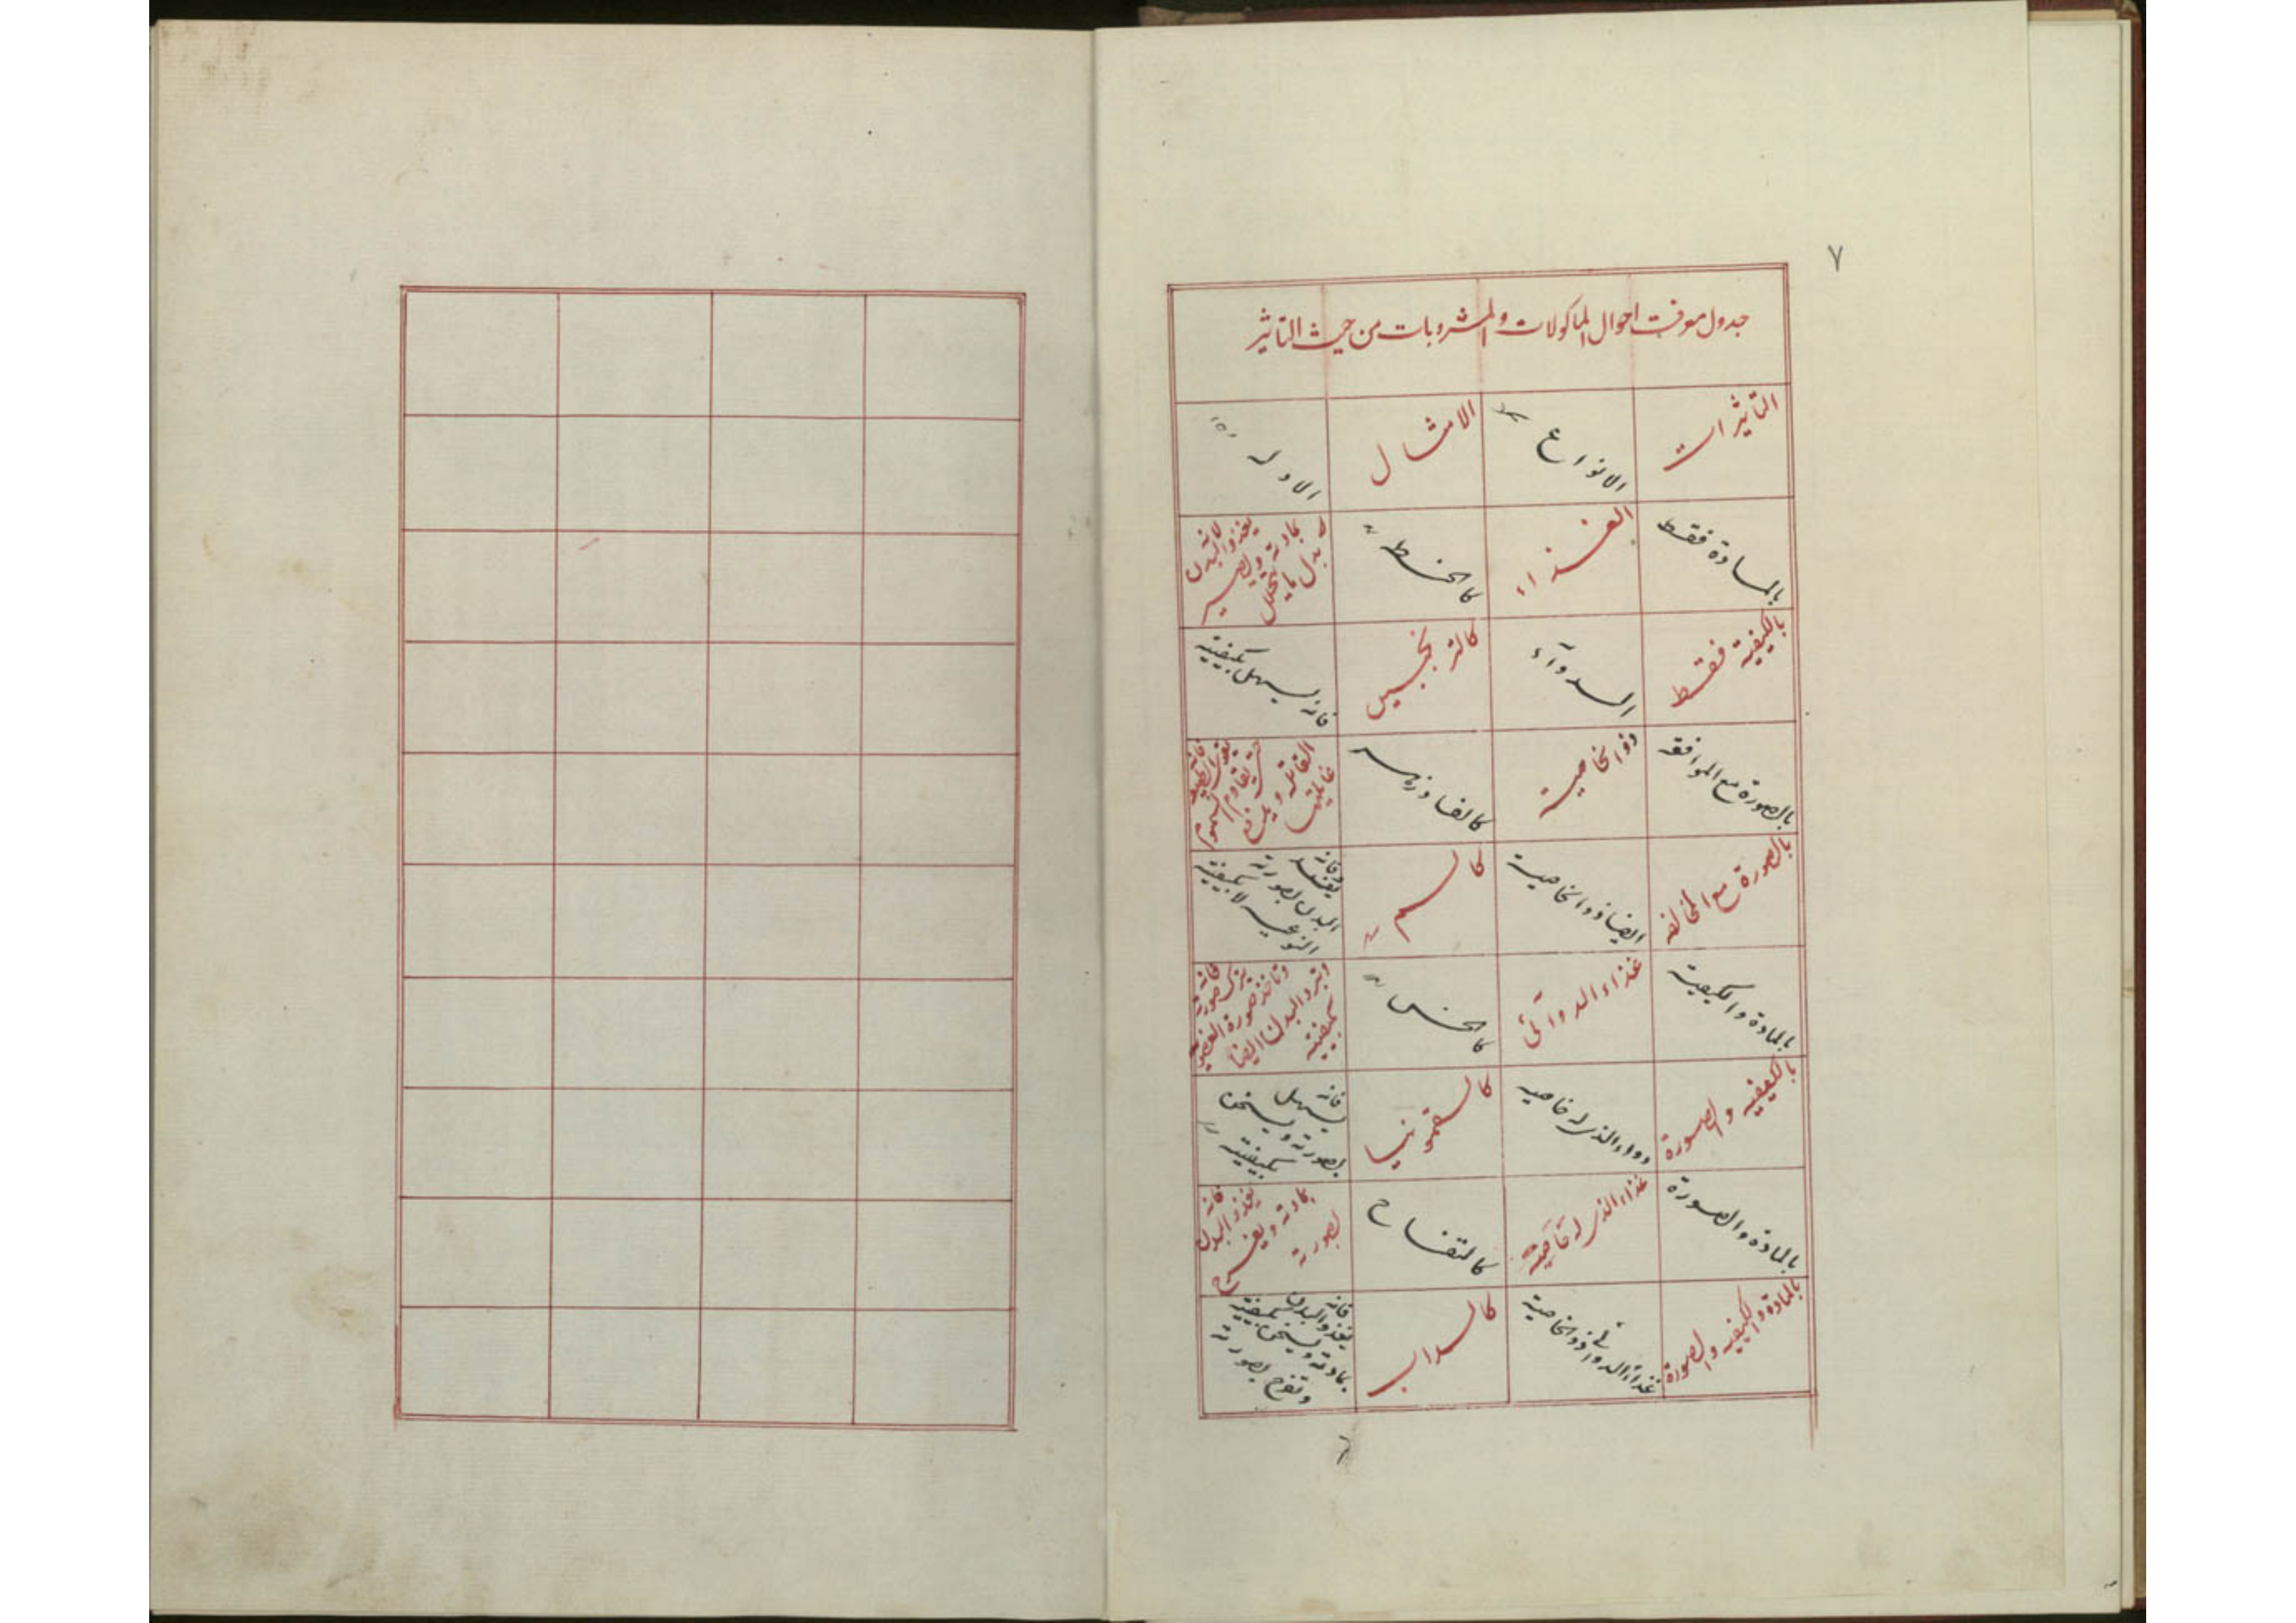 ۷
جدول معرفت احوال المأكولات والمشروبات من حيث التاثير
التأثيرات
الانواع
الامثال
الادلة
بالمادة فقط
الغذاء
كالحنطة
لانه
يغذو البدن
بمادته ويصير
بدل ما يتحلل
بالكيفية فقط
الدوآء
كالترنجبين
فانه يسهل بكيفيته
بالصورة مع الموافقة
ذو الخاصية
كالفادزهر
فانه
يقوى الطبيعة
حتى يقاوم السموم
القاتلة ويدفع
غايلتها
بالصورة مع المخالفه
ايضا ذو الخاصية
كالسم
فانه
يفسد
البدن بصورته
النوعية لا بكيفيته
بالمادة والكيفية
غذاء الدوآئى
كالخس
فانه
يترك صورته
وتاخذ صورة العضو
وتبرد البدن ايضا
بكيفيته
بالكيفيه والصورة
دواء الذى له خاصيه
كالسقمونيا
فانه
يسهل
بصورته ويسخن
بكيفيته
بالمادة والصورة
غذاء الذى له خاصية
كالتفاح
فانه
يغذو البدن
بمادته ويفرح
بصورته
بالمادة والكيفيه والصورة
غذاء الدوائى ذو الخاصية
كالسداب
فانه
يغذو البدن
بمادته ويسخن بكيفيته
وتفرح بصورته